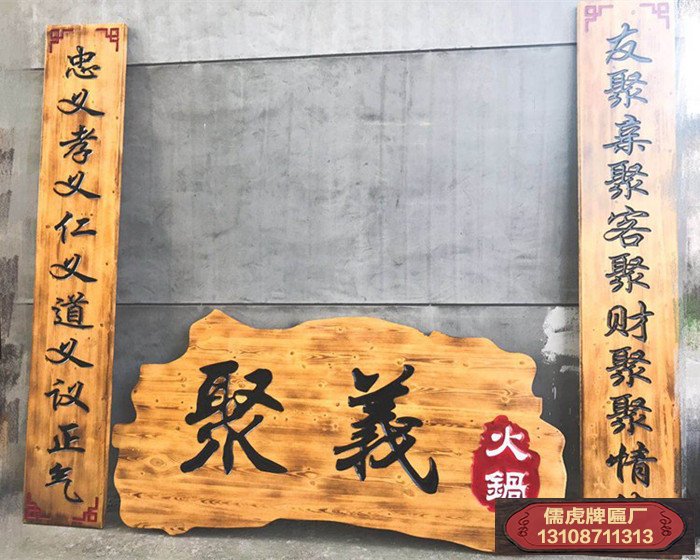 友聚亲聚客聚财聚聚情
忠义孝义仁义道义议正气
聚義
火鍋
儒虎牌匾厂
13108711313